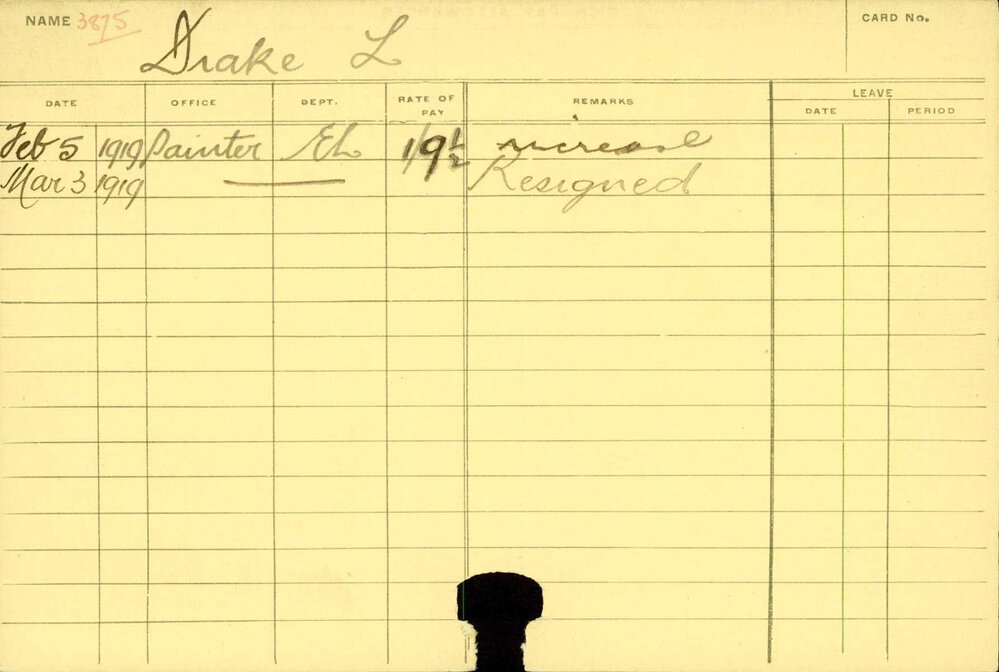 NAME 3875 Drake L CARD No.
DATE OFFICE DEPT. RATE OF PAY REMARKS LEAVE
DATE PERIOD
Feb 5 1919 Painter Eh 1/9½ increase
Mar 3 1919 — Resigned